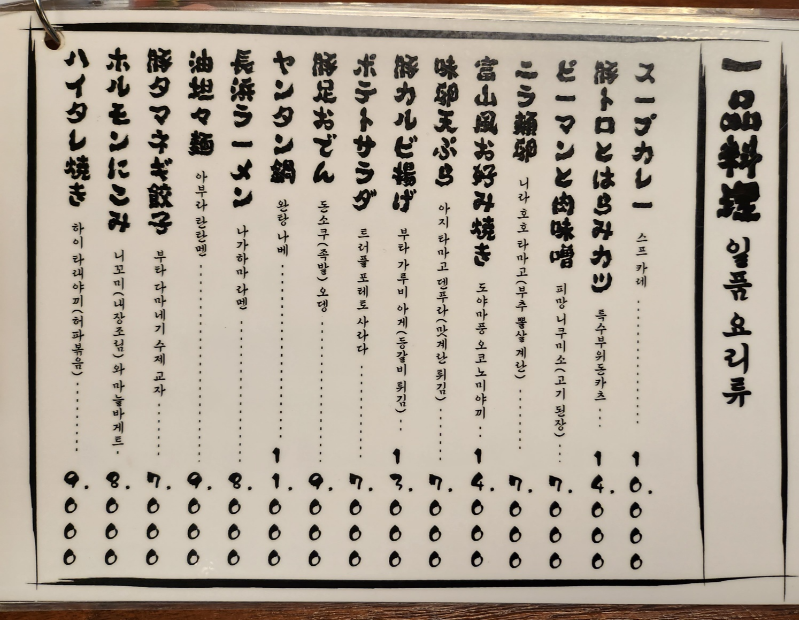 一品料理 일품 요리류
スープカレー 스프 카레 ............ 10.000
豚トロとはらみカツ 특수부위돈카츠 ... 14.000
ピーマンと肉味噌 피망 니쿠미소(고기 된장) ... 7.000
ニラ頬卵 니라 호호 타마고(부추 뽈살 계란) ......... 7.000
富山風お好み焼き 도야마풍 오코노미야끼 .. 14.000
味卵天ぷら 아지 타마고 덴푸라(맛계란 튀김) ...... 7.000
豚カルビ揚げ 부타 가루비 아게(등갈비 튀김) ... 13.000
ポテトサラダ 트러플 포테토 사라다 ......... 7.000
豚足おでん 돈소쿠(족발) 오뎅 ............ 9.000
ヤンタン鍋 완탕 나베 ............... 11.000
長浜ラーメン 나가하마 라멘 ............... 8.000
油坦々麺 아부라 탄탄멘 .................. 9.000
豚タマネギ餃子 부타 다마네기 수제 교자 ...... 7.000
ホルモンにこみ 니꼬미(내장조림)와 마늘바게트. 8.000
ハイタレ焼き 하이 타래야끼(허파볶음) ......... 9.000